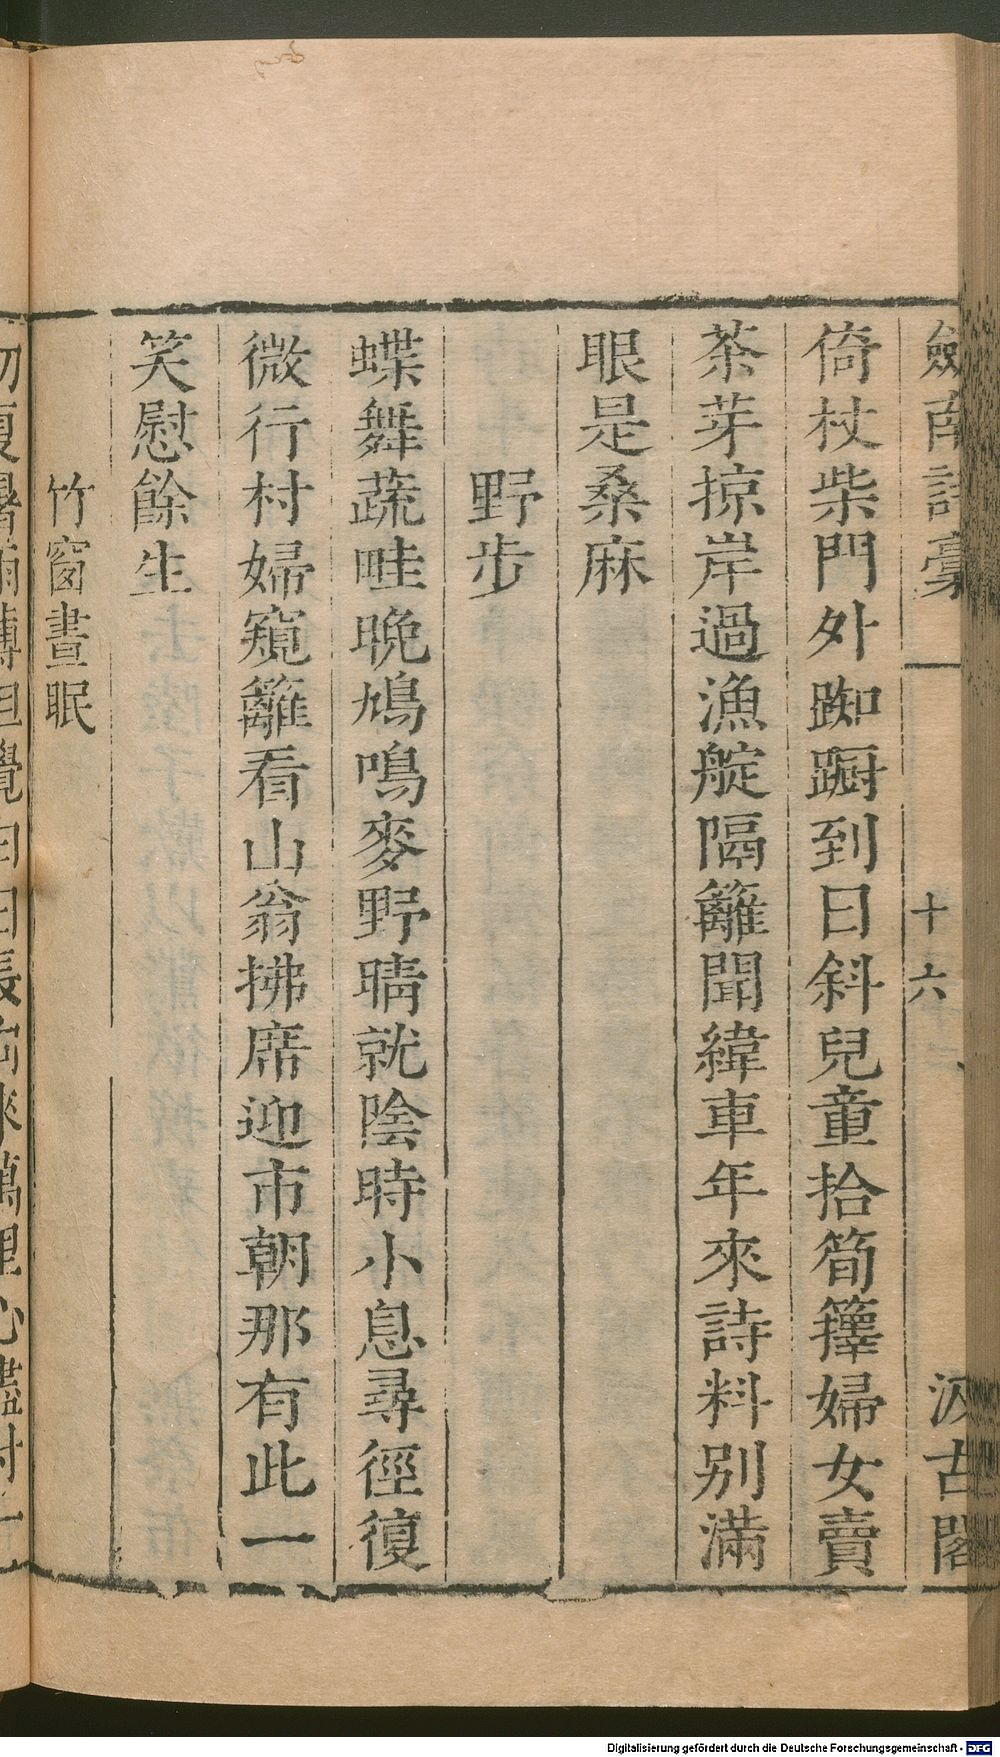 劍南詩稾
十六
汲古閣
倚杖柴門外踟蹰到日斜兒童拾筍籜婦女賣
茶芽掠岸過漁艇隔籬聞緯車年來詩料別滿
眼是桑麻
野步
蝶舞蔬畦晚鳩鳴麥野晴就陰時小息尋徑復
微行村婦窺籬看山翁拂席迎市朝那有此一
笑慰餘生
竹窗晝眠
Digitalisierung gefördert durch die Deutsche Forschungsgemeinschaft - DFG